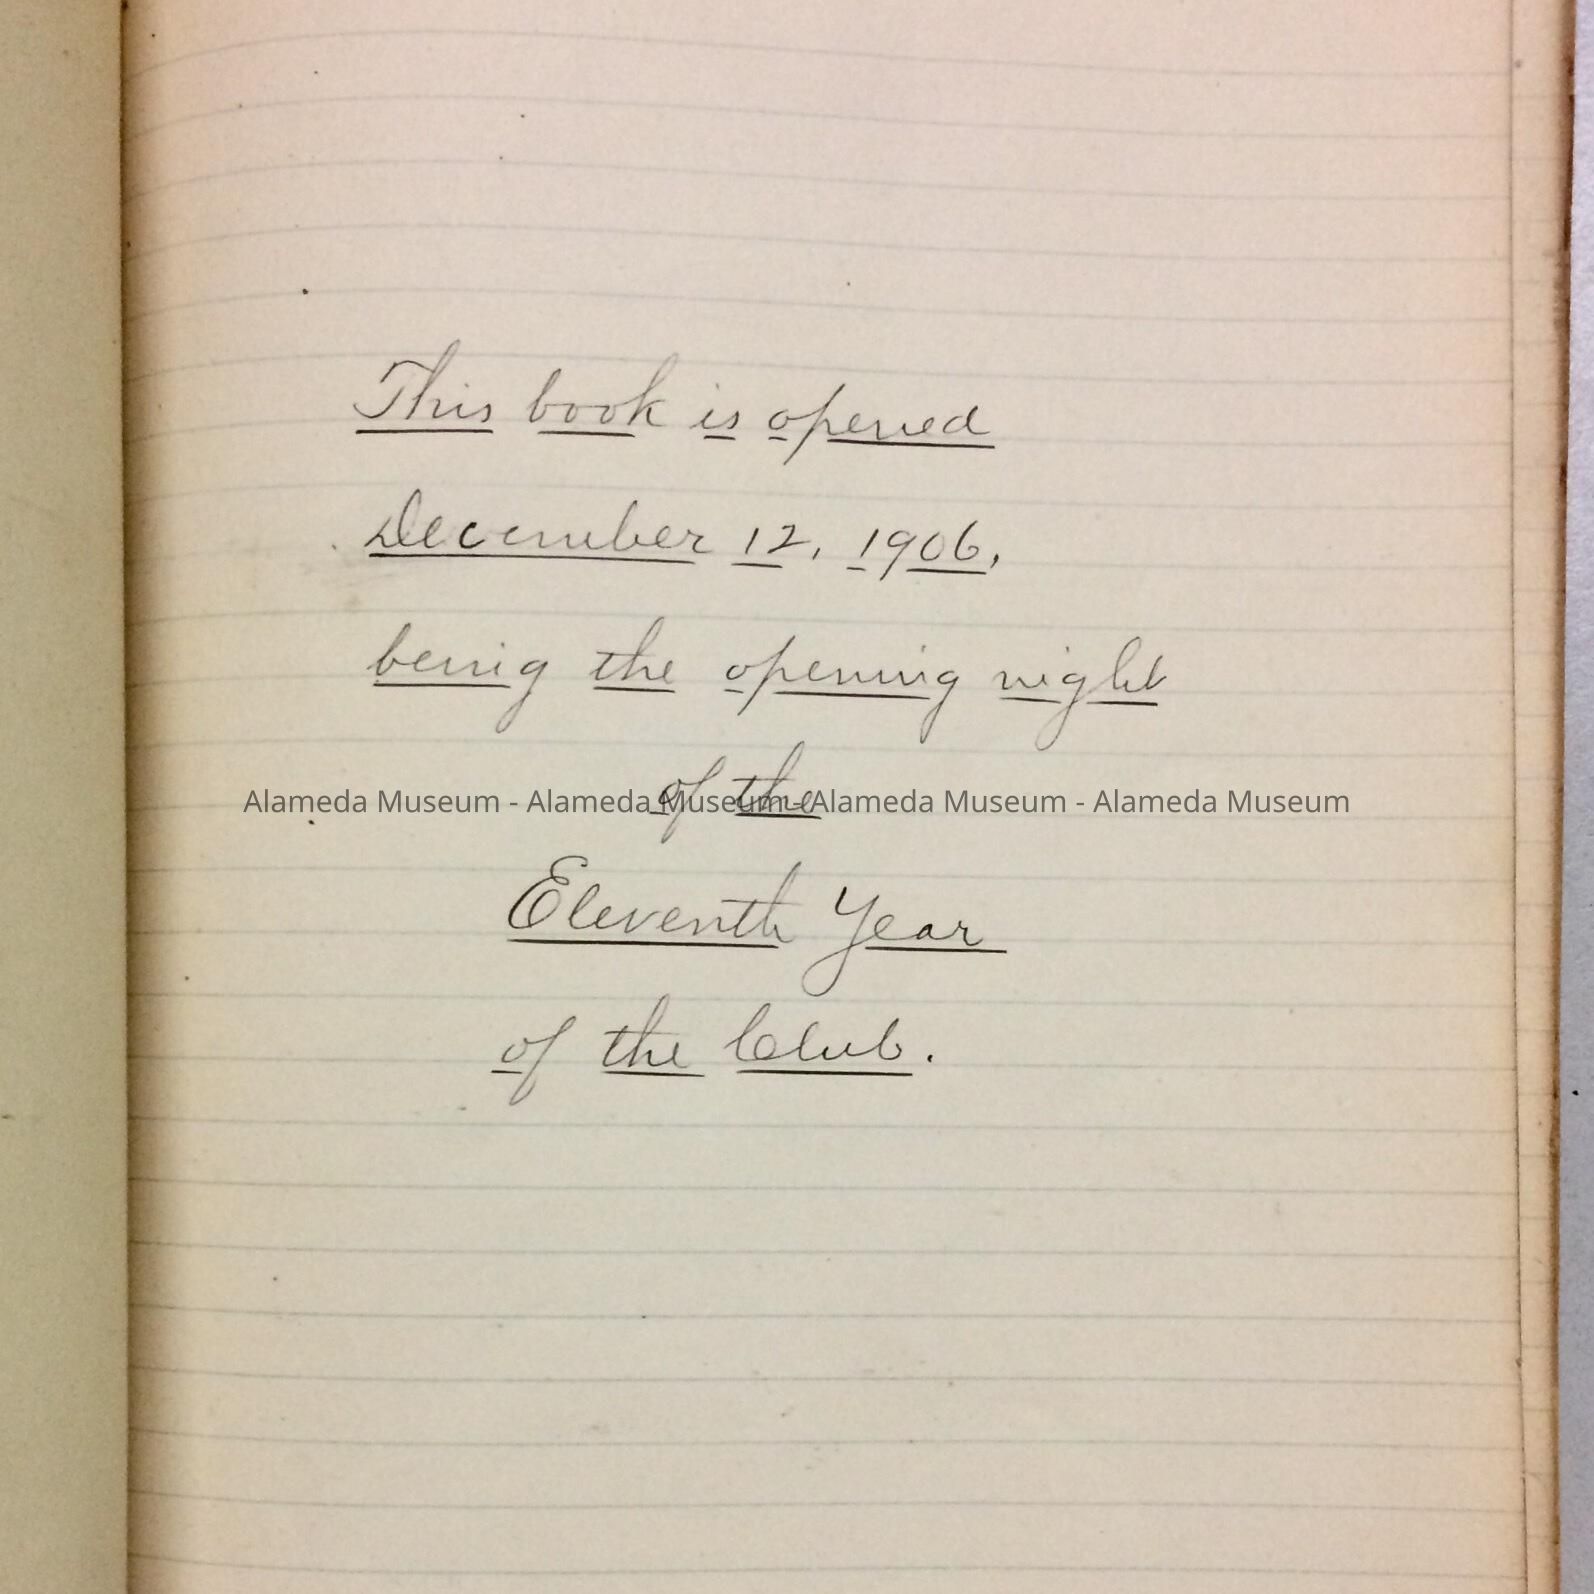 This book is opened
December 12, 1906,
being the opening night
of the
Alameda Museum - Alameda Museum - Alameda Museum - Alameda Museum
Eleventh Year
of the Club.